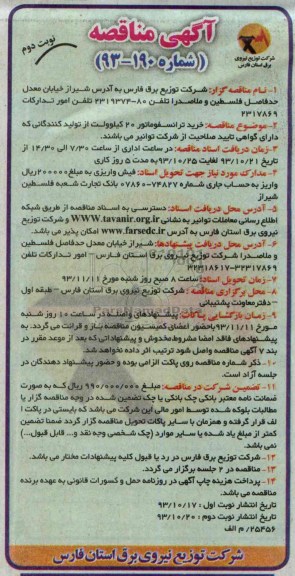 آگهی مناقصه
(شماره ۱۹۰-۹۳)
نوبت دوم
شرکت توزیع نیروی
برق استان فارس
۱- نام مناقصه گزار: شرکت توزیع برق فارس به آدرس شیراز خیابان معدل
حدفاصل فلسطین و ملاصدرا تلفن ۸۰-۲۳۱۹۳۷۴ تلفن امور تدارکات
۲۳۱۷۸۶۹
۲- موضوع مناقصه: خرید ترانسفوماتور ۲۰ کیلوولت از تولید کنندگانی که
دارای گواهی تایید صلاحیت از شرکت توانیر می باشند.
۳- زمان دریافت اسناد مناقصه: در ساعت اداری از ساعت ۷/۳۰ الی ۱۴/۳۰ از
تاریخ ۹۳/۱۰/۲۱ لغایت ۹۳/۱۰/۲۵ به مدت ۵ روز کاری
۴- مدارک مورد نیاز جهت تحویل اسناد: فیش واریزی به مبلغ ۲۰۰۰۰۰ریال
واریز به حساب جاری شماره ۰۷۸۶۰۷۴۸۲۷ بانک تجارت شعبه فلسطین
شیراز
۵- آدرس محل دریافت اسناد: دسترسی به اسناد مناقصه از طریق شبکه
اطلاع رسانی معاملات توانیر به نشانی WWW.tavanir.org.ir و شرکت توزیع
نیروی برق استان فارس به آدرس www.farsedc.ir امکان پذیر می باشد.
۶- آدرس محل دریافت پیشنهادها: شیراز خیابان معدل حدفاصل فلسطین
و ملاصدرا شرکت توزیع نیروی برق استان فارس - امور تدارکات تلفن
۷- زمان تحویل اسناد: ساعت ۸ صبح روز شنبه مورخ ۹۳/۱۱/۱۱
۸- محل برگزاری مناقصه: شرکت توزیع نیروی برق استان فارس - طبقه اول
- دفتر معاونت پشتیبانی
۹- زمان بازگشایی پاکات: پیشنهادهای واصله در ساعت ۱۰ روز شنبه
مورخ ۹۳/۱۱/۱۱ باحضور اعضای کمیسیون مناقصه باز و قرائت می گردد. به
پیشنهادهای فاقد امضا مشروط مخدوش و پیشنهاداتی که بعد از موعد مقرر در
بند ۷ آگهی مناقصه واصل شود ترتیب اثر داده نخواهد شد.
۱۰- ذکر شماره مناقصه روی پاکت الزامی بوده و حضور پیشنهاد دهندگان در
جلسه آزاد است.
۱۱- تضمین شرکت در مناقصه: مبلغ ۹۹۰/۰۰۰/۰۰۰ ریال که به صورت
ضمانت نامه معتبر بانکی چک بانکی یا چک تضمین شده در وجه مناقصه گزار یا
مطالبات بلوکه شده توسط امور مالی این شرکت می باشد که بایستی در پاکت ا
لف قرار گرفته و همزمان با سایر پاکات تحویل مناقصه گزار گردد ضمنا تضمین
کمتر از مبلغ یاد شده یا سایر موارد (چک شخصی وجه نقد و... قابل قبول...)
نمی باشد.
۱۲- شرکت توزیع برق فارس در رد یا قبول کلیه پیشنهادات مختار می باشد.
۱۳- مناقصه در ۲ جلسه برگزار می گردد.
۱۴- پرداخت هزینه چاپ آگهی در روزنامه حمل و کسورات قانونی به عهده برنده
مناقصه می باشد.
تاریخ انتشار نوبت اول: ۹۳/۱۰/۱۷
تاریخ انتشار نوبت دوم: ۹۳/۱۰/۲۰
۲۵۴۵۶/ م الف
شرکت توزیع نیروی برق استان فارس